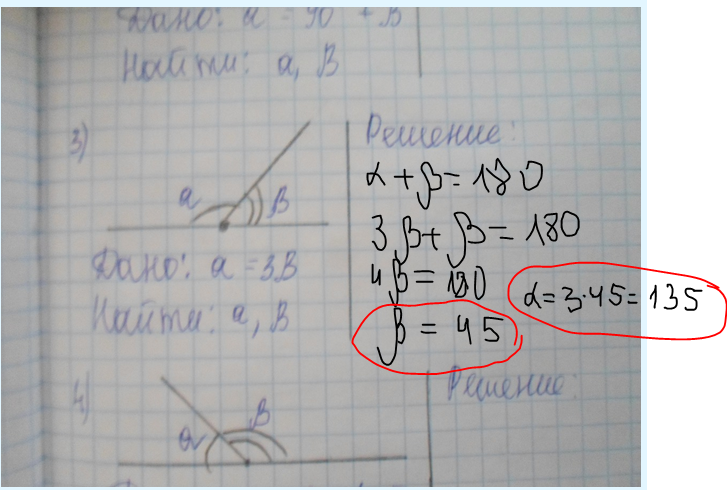 Дано: α = 90 + β
Найти: α, β
3)
α β
Дано: α = 3β
Найти: α, β
Решение:
α + β = 180
3β + β = 180
4β = 180
β = 45
α = 3·45 = 135
4)
α β
Решение: